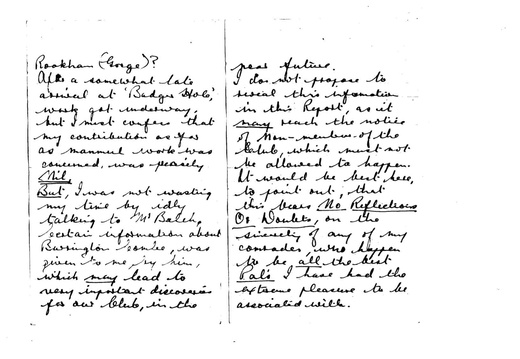 Rookham (Gorge)?
After a somewhat late
arrival at 'Badger Hole',
work got underway,
but I must confess that
my contribution as far
as manuel work was
concerned, was precisely
Nil.
But, I was not wasting
my time by idly
talking to Mr Balch,
certain information about
Burrington Combe, was
given to me by him,
which may lead to
very important discoveries
for our Club, in the
near future.
I do not propose to
reveal this information
in this Report, as it
may reach the notice
of Non-members of the
Club, which must not
be allowed to happen.
It would be best, here,
to point out, that
this bears No Reflections
Or Doubts, on the
sincerety of any of my
comrades, who happen
to be all the best
Pals I have had the
extreme pleasure to be
associated with.